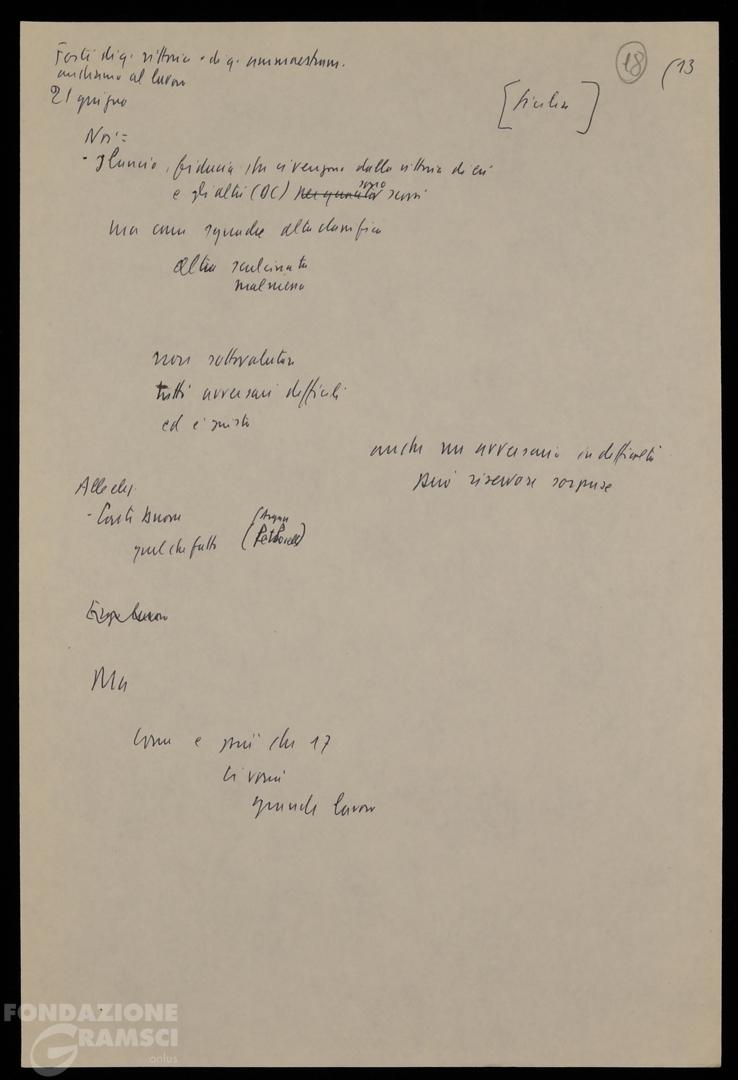 Forti di q. vittoria e di q. ammaestram.
andiamo al lavoro
21 giugno
18 (13
[Sicilia]
Noi =
- slancio, fiducia che ci vengono dalla vittoria di ieri
e gli altri (DC) sono scossi
ma come squadre alta classifica
altra scalcinata
malmessa
non sottovalutare
tutti avversari difficili
ed è giusto
anche un avversario in difficoltà
può riservare sorprese
Alle elez.
- Carte buone (Argan
quel che fatto (Petroselli)
Ma
Come e più che 17
ci vorrà
grande lavoro
FONDAZIONE
GRAMSCI
onlus